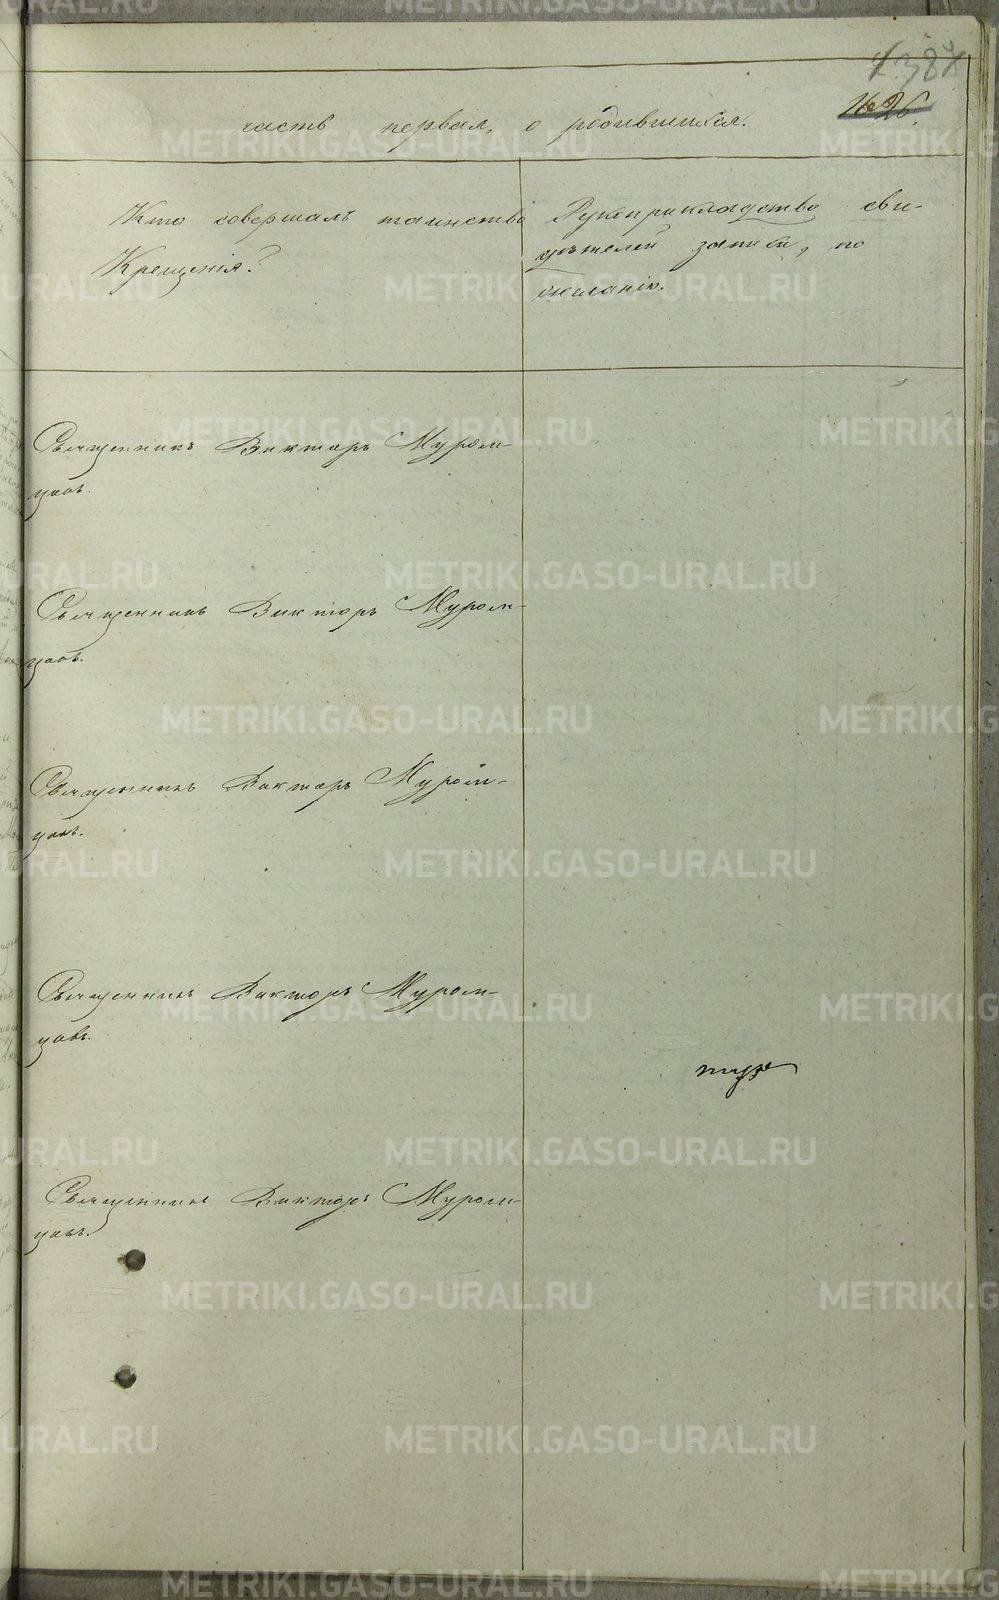 часть первая, о родившихся.
Кто совершалъ таинство
Крещенія?
Рукоприкладство сви-
дѣтелей записи, по
желанію.
Священникъ Викторъ Муром-
цовъ.
Священникъ Викторъ Муром-
цовъ.
Священникъ Викторъ Муром-
цовъ.
Священникъ Викторъ Муром-
цовъ.
Священникъ Викторъ Муром-
цовъ.
METRIKI.GASO-URAL.RU